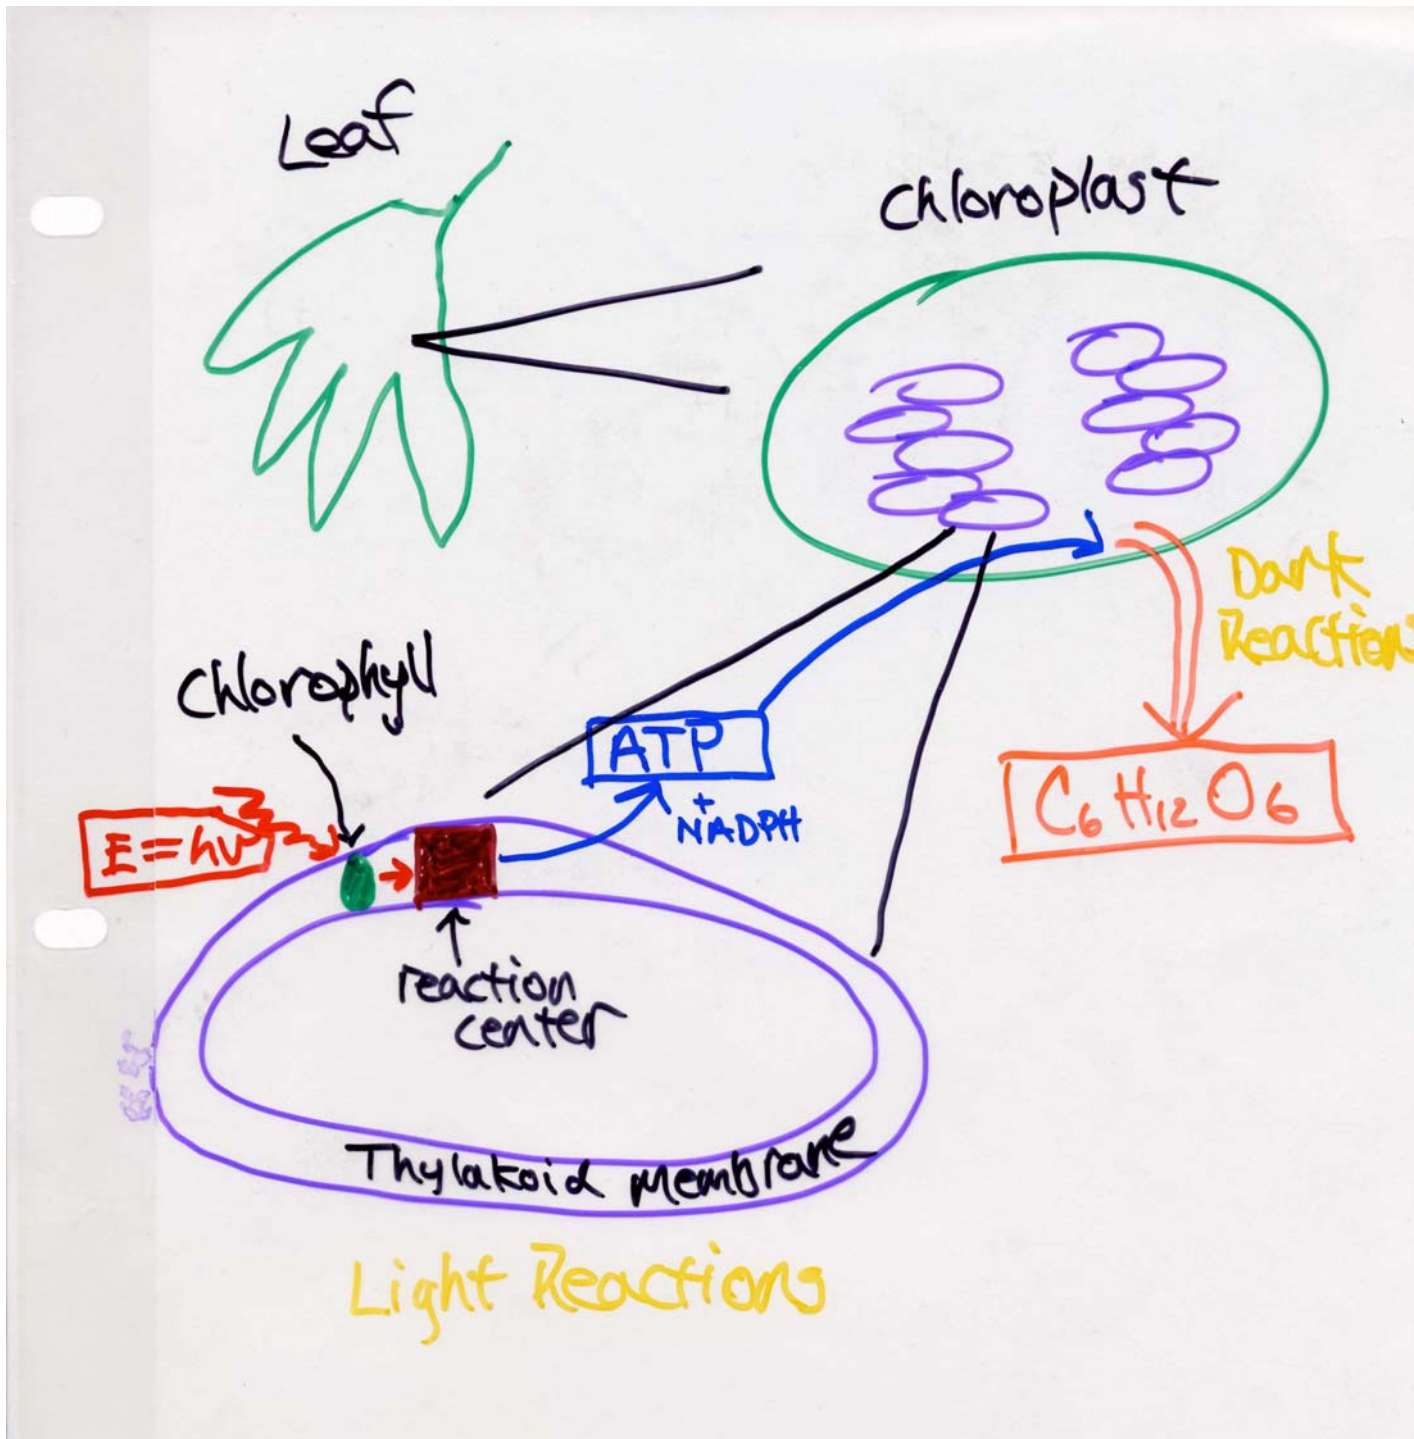 Leaf
Chloroplast
Dark
Reactions
Chlorophyll
ATP
+
NADPH
C₆H₁₂O₆
E=hν
reaction
center
Thylakoid membrane
Light Reactions